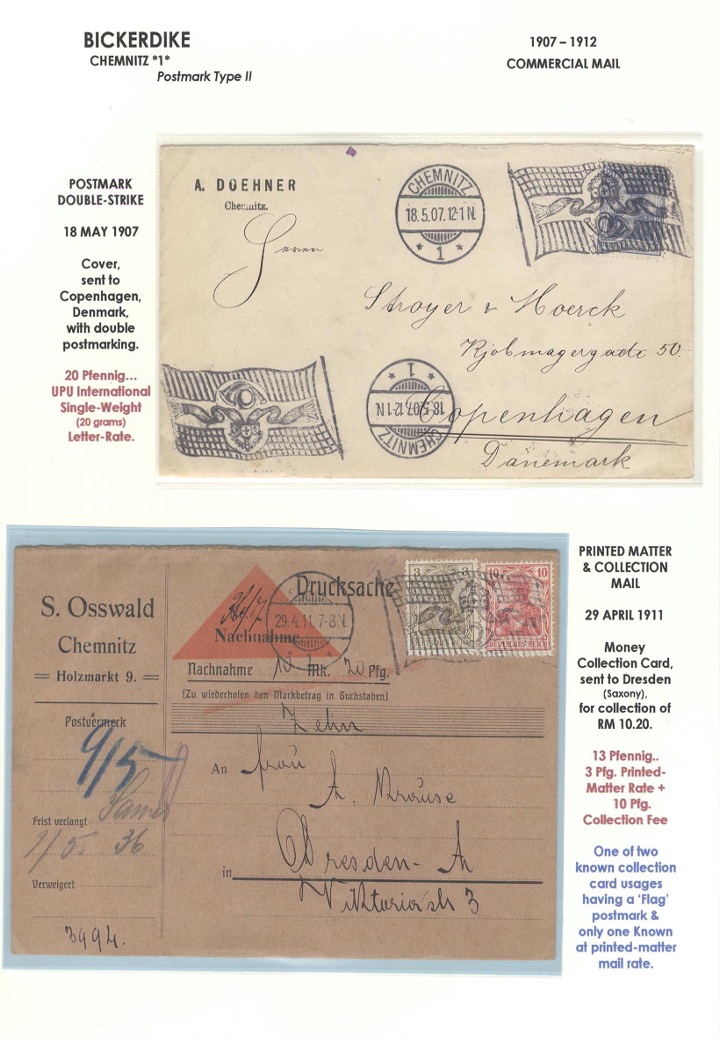 BICKERDIKE
CHEMNITZ *1*
Postmark Type II
1907 – 1912
COMMERCIAL MAIL
POSTMARK
DOUBLE-STRIKE
18 MAY 1907
Cover,
sent to
Copenhagen,
Denmark,
with double
postmarking.
20 Pfennig...
UPU International
Single-Weight
(20 grams)
Letter-Rate.
A. DOEHNER
Chemnitz.
CHEMNITZ
18.5.07.12-1N.
* 1 *
Herren
Stroyer & Hoerck
Kjobmagergade 50.
Copenhagen
Dänemark
* 1 *
18.5.07.12-1N.
CHEMNITZ
PRINTED MATTER
& COLLECTION
MAIL
29 APRIL 1911
Money
Collection Card,
sent to Dresden
(Saxony),
for collection of
RM 10.20.
13 Pfennig..
3 Pfg. Printed-
Matter Rate +
10 Pfg.
Collection Fee
One of two
known collection
card usages
having a 'Flag'
postmark &
only one Known
at printed-matter
mail rate.
S. Osswald
Chemnitz
Holzmarkt 9.
Postvermerk
9/5
Frist verlangt
36
Verweigert
3994.
Drucksache
29.4.11.7-8N.
Nachnahme
Nachnahme 10 Mk. 20 Pfg.
(Zu wiederholen den Markbetrag in Buchstaben)
Zehn
An Frau
A. Krause
in Dresden-A
Viktoriastr 3
3 3
10 10
DEUTSCHES REICH